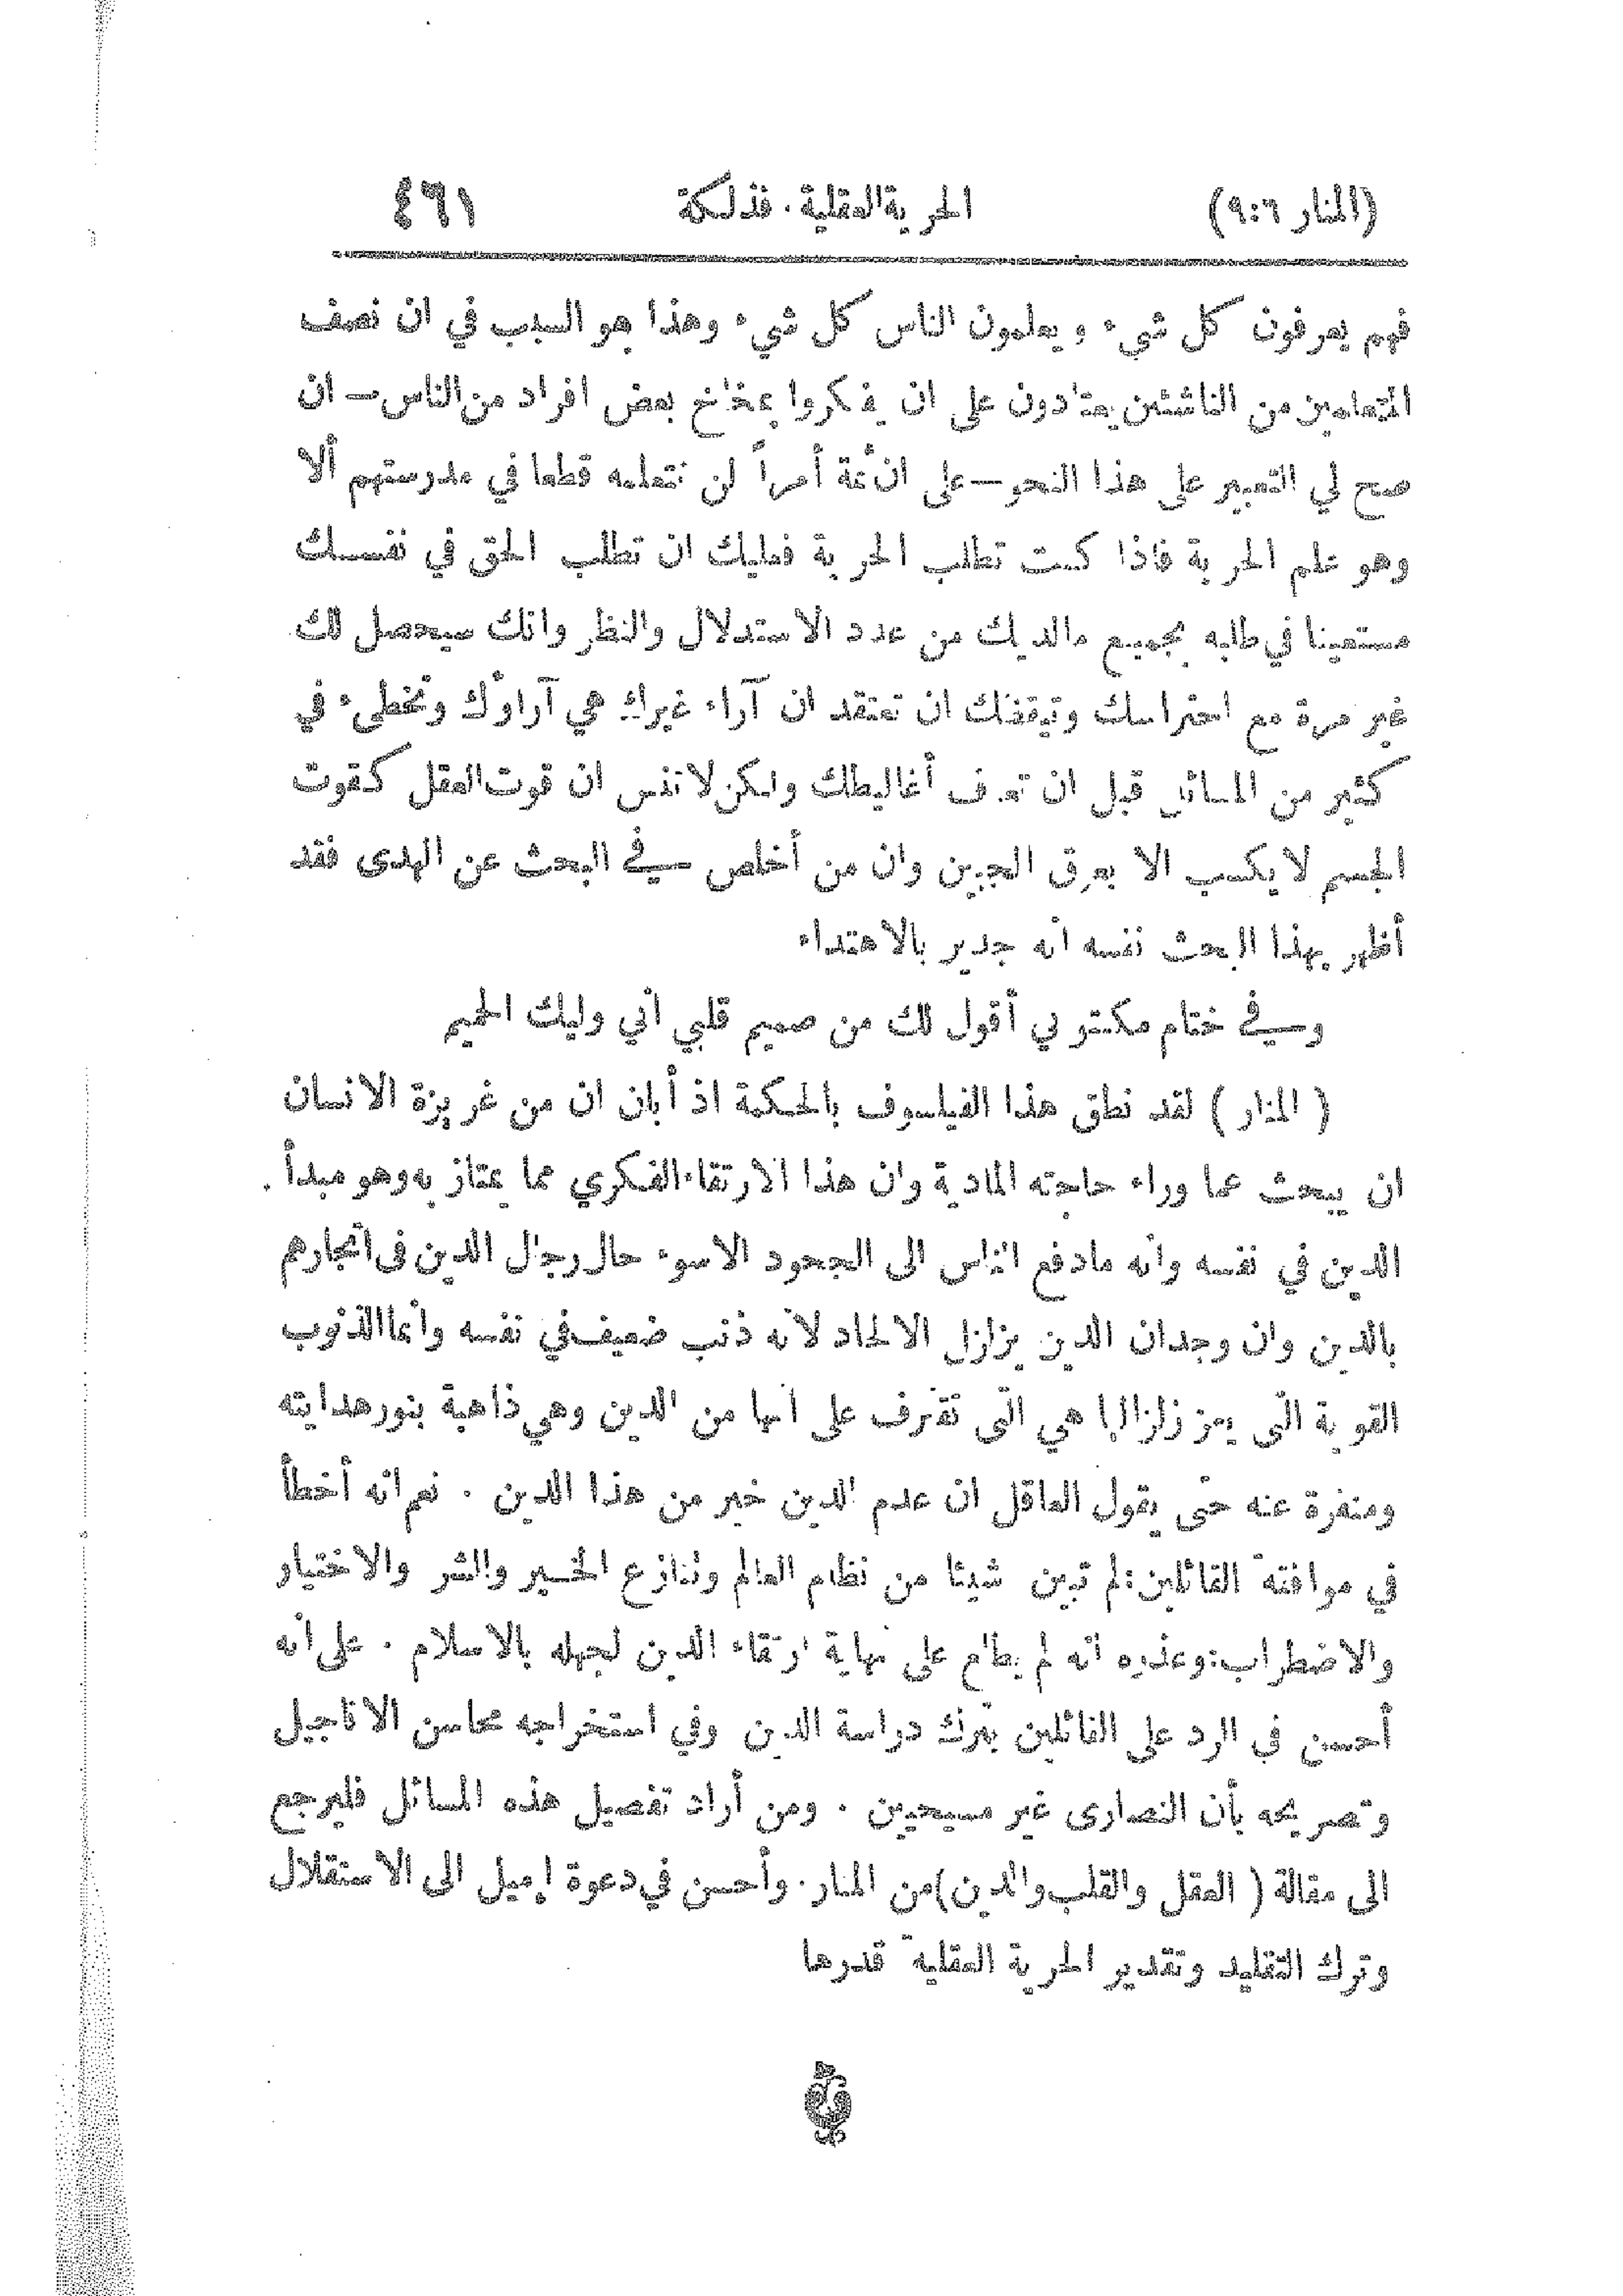 (المنار ٩:٦) الحرية العقلية . فذلكة ٤٦١
فهم يعرفون كل شيء ويعلمون الناس كل شيء وهذا هو السبب في ان نصف
المتعلمين من الناشئين يعتادون على ان يفكروا بمخاخ بعض افراد من الناس — ان
صح لي التعبير على هذا النحو — على ان ثمة أمراً لن نتعلمه قطعا في مدرستهم ألا
وهو علم الحرية فاذا كنت تطلب الحرية فعليك ان تطلب الحق في نفسك
مستعينا في طلبه بجميع مالديك من عدد الاستدلال والنظر وانك سيحصل لك
غير مرة مع احتراسك وتيقظك ان تعتقد ان آراء غيرك هي آراؤك وتخطيء في
كثير من المسائل قبل ان تعرف أغاليطك ولكن لا تنس ان قوت العقل كقوت
الجسم لا يكسب الا بعرق الجبين وان من أخلص في البحث عن الهدى فقد
أظهر بهذا البحث نفسه انه جدير بالاهتداء
وفي ختام مكتوبي أقول لك من صميم قلبي اني وليك الحميم
( المنار ) لقد نطق هذا الفيلسوف بالحكمة اذ أبان ان من غريزة الانسان
ان يبحث عما وراء حاجته المادية وان هذا الارتقاء الفكري مما يمتاز به وهو مبدأ
الدين في نفسه وانه مادفع الناس الى الجحود الاسوء حال رجال الدين في اتجارهم
بالدين وان وجدان الدين يزلزل الالحاد لانه ذنب ضعيف في نفسه وانما الذنوب
القوية التي يعز زلزالها هي التي تقترف على انها من الدين وهي ذاهبة بنور هدايته
ومنفرة عنه حتى يقول العاقل ان عدم الدين خير من هذا الدين . نعم انه أخطأ
في موافقته القائلين : لم تبين شيئا من نظام العالم وتنازع الخير والشر والاختيار
والاضطراب : وعذره انه لم يطلع على نهاية ارتقاء الدين لجهله بالاسلام . على انه
أحسن في الرد على القائلين بترك دراسة الدين وفي استخراجه محاسن الاناجيل
وتصريحه بأن النصارى غير مسيحيين . ومن أراد تفصيل هذه المسائل فليرجع
الى مقالة ( العقل والقلب والدين ) من المنار . وأحسن في دعوة إميل الى الاستقلال
وترك التقليد وتقدير الحرية العقلية قدرها